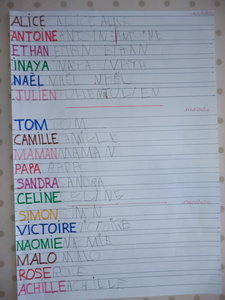 ALICE ALICE ALICE
ANTOINE ANTOINE ANTOINE
ETHAN ETHAN ETHAN
INAYA INAYA INAYA
NAËL NAËL NAËL
JULIEN JULIEN JULIEN
TOM TOM
CAMILLE CAMILLE
MAMAN MAMAN
PAPA PAPA
SANDRA SANDRA
CELINE CELINE
SIMON SIMON
VICTOIRE VICTOIRE
NAOMIE NAOMIE
MALO MALO
ROSE ROSE
ACHILLE ACHILLE